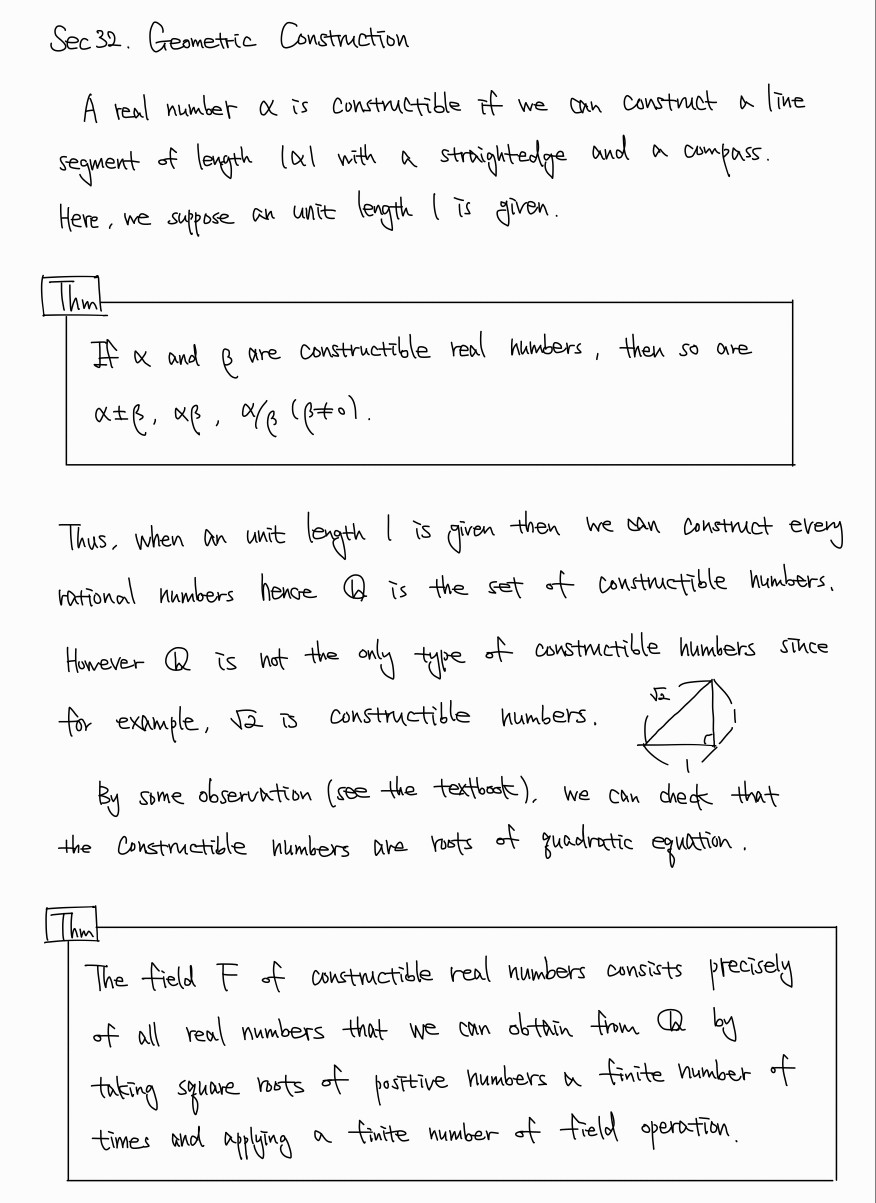 Sec 32. Geometric Construction
A real number α is constructible if we can construct a line
segment of length |α| with a straightedge and a compass.
Here, we suppose an unit length 1 is given.
Thm
If α and β are constructible real numbers, then so are
α±β, αβ, α/β (β≠0).
Thus, when an unit length 1 is given then we can construct every
rational numbers hence ℚ is the set of constructible numbers.
However ℚ is not the only type of constructible numbers since
for example, √2 is constructible numbers.
√2
1
1
By some observation (see the textbook), we can check that
the constructible numbers are roots of quadratic equation.
Thm
The field F of constructible real numbers consists precisely
of all real numbers that we can obtain from ℚ by
taking square roots of positive numbers a finite number of
times and applying a finite number of field operation.